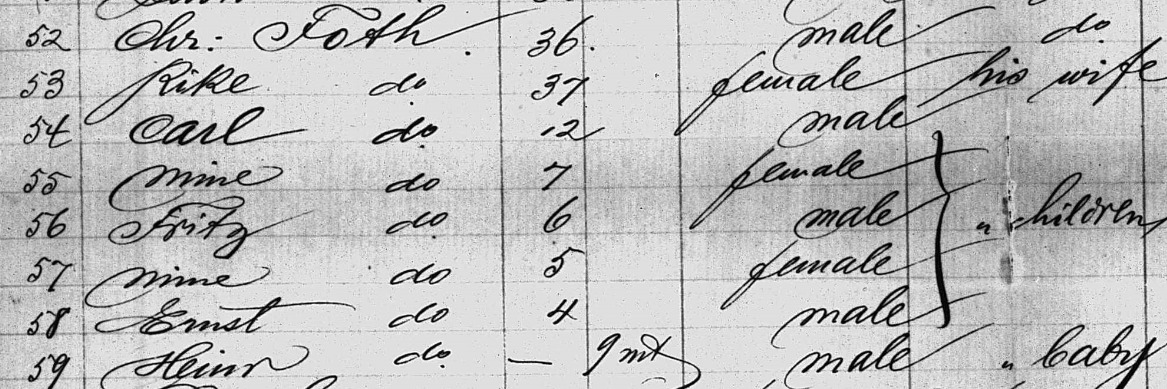 52 Chr: Foth. 36. male do
53 Rike do 37 female his wife
54 Carl do 12 male
55 Mine do 7 female
56 Fritz do 6 male " children
57 Mine do 5 female
58 Ernst do 4 male
59 Heinr do — 9 mt male " baby